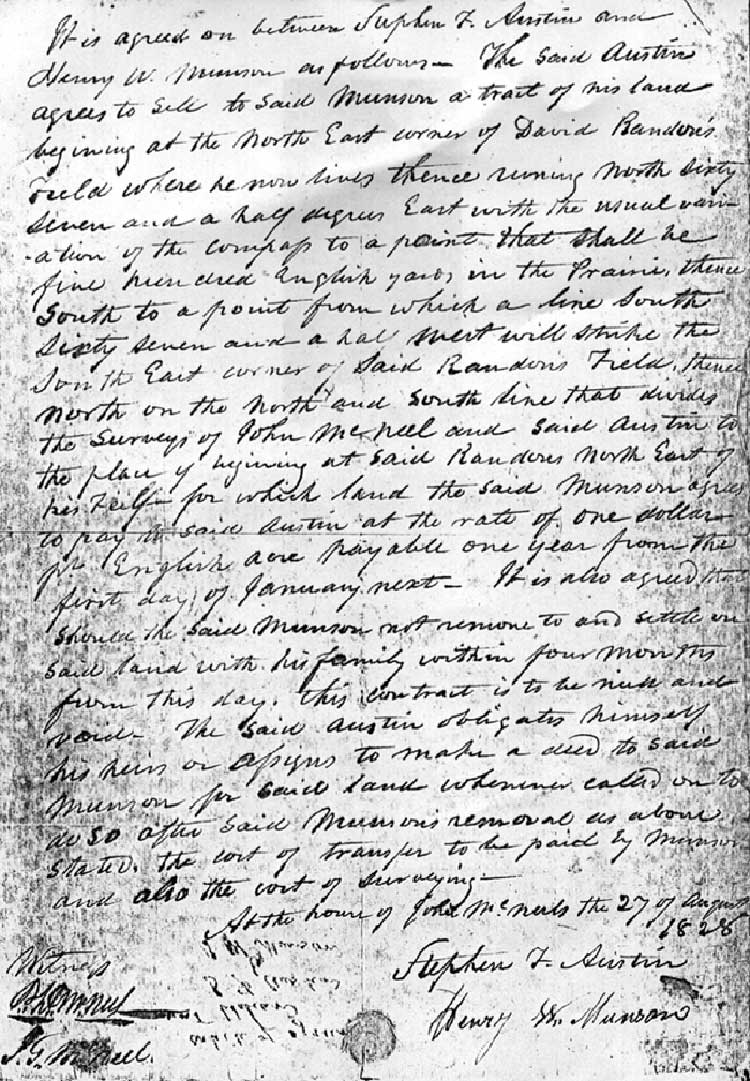 It is agreed on between Stephen F. Austin and
Henry W. Munson as follows— The said Austin
agrees to Sell to Said Munson a tract of his land
begining at the North East corner of David Randon's
Field where he now lives thence runing North Sixty
Seven and a half degrees East with the usual vari-
ation of the compass to a point that shall be
five hundred English yards in the Prairie, thence
South to a point from which a line South
Sixty Seven and a half west will strike the
South East corner of Said Randon's Field, thence
North on the North and South line that divides
the Surveys of John McNeel and Said Austin to
the place of begining at Said Randons North East
for which land the said Munson agrees
to pay Said Austin at the rate of one dollar
pr English acre payable one year from the
first day of January next— It is also agreed that
Should the Said Munson not remove to and settle on
Said land with his family within four Months
from this day, this contract is to be null and
void— The Said Austin obligates himself
his heirs or assigns to make a deed to Said
Munson for Said land whenever called on to
do so after Said Munson's removal as above
Stated, the cost of transfer to be paid by Munson
and also the cost of surveying—
At the house of John McNeels the 27 of August
1828
Witness
Stephen F. Austin
Henry W. Munson
J. G. McNeel.